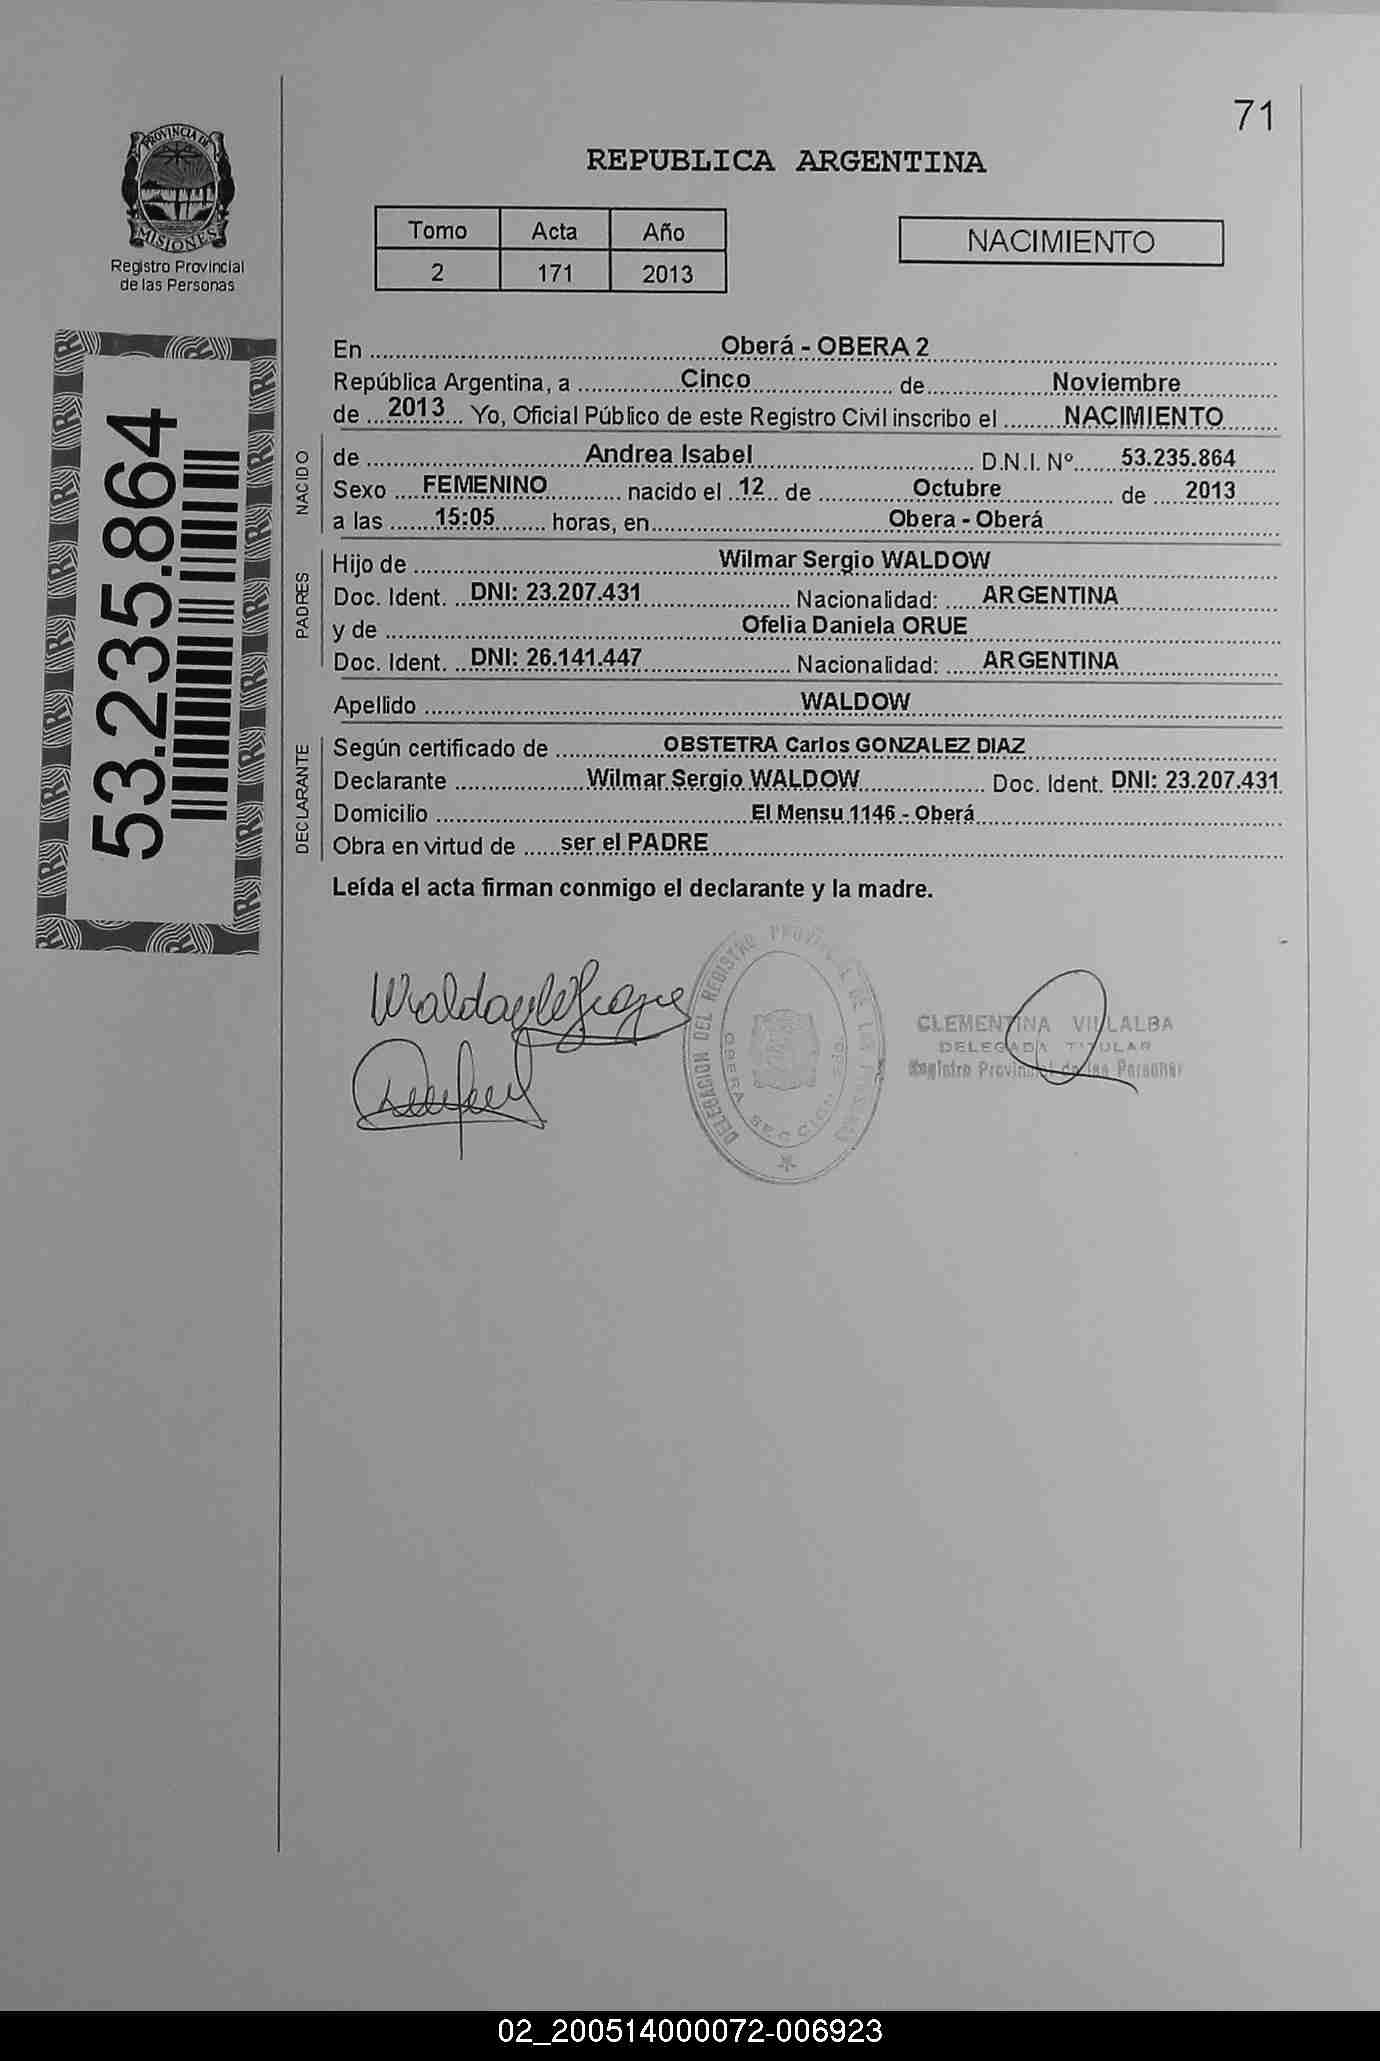 71
REPUBLICA ARGENTINA
PROVINCIA DE
MISIONES
Registro Provincial
de las Personas
Tomo Acta Año
2 171 2013
NACIMIENTO
53.235.864
En Oberá - OBERA 2
República Argentina, a Cinco de Noviembre
de 2013 Yo, Oficial Público de este Registro Civil inscribo el NACIMIENTO
NACIDO
de Andrea Isabel D.N.I. Nº 53.235.864
Sexo FEMENINO nacido el 12 de Octubre de 2013
a las 15:05 horas, en Obera - Oberá
PADRES
Hijo de Wilmar Sergio WALDOW
Doc. Ident. DNI: 23.207.431 Nacionalidad: ARGENTINA
y de Ofelia Daniela ORUE
Doc. Ident. DNI: 26.141.447 Nacionalidad: ARGENTINA
Apellido WALDOW
DECLARANTE
Según certificado de OBSTETRA Carlos GONZALEZ DIAZ
Declarante Wilmar Sergio WALDOW Doc. Ident. DNI: 23.207.431
Domicilio El Mensu 1146 - Oberá
Obra en virtud de ser el PADRE
Leída el acta firman conmigo el declarante y la madre.
DELEGACION DEL REGISTRO PROVINCIAL DE LAS PERSONAS
OBERA SECCION 2do.
CLEMENTINA VILLALBA
DELEGADA TITULAR
Registro Provincial de las Personas
02_200514000072-006923